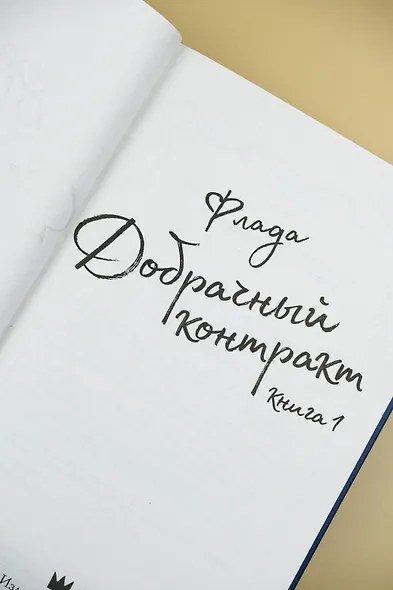 Флада
Добрачный
контракт
Книга 1